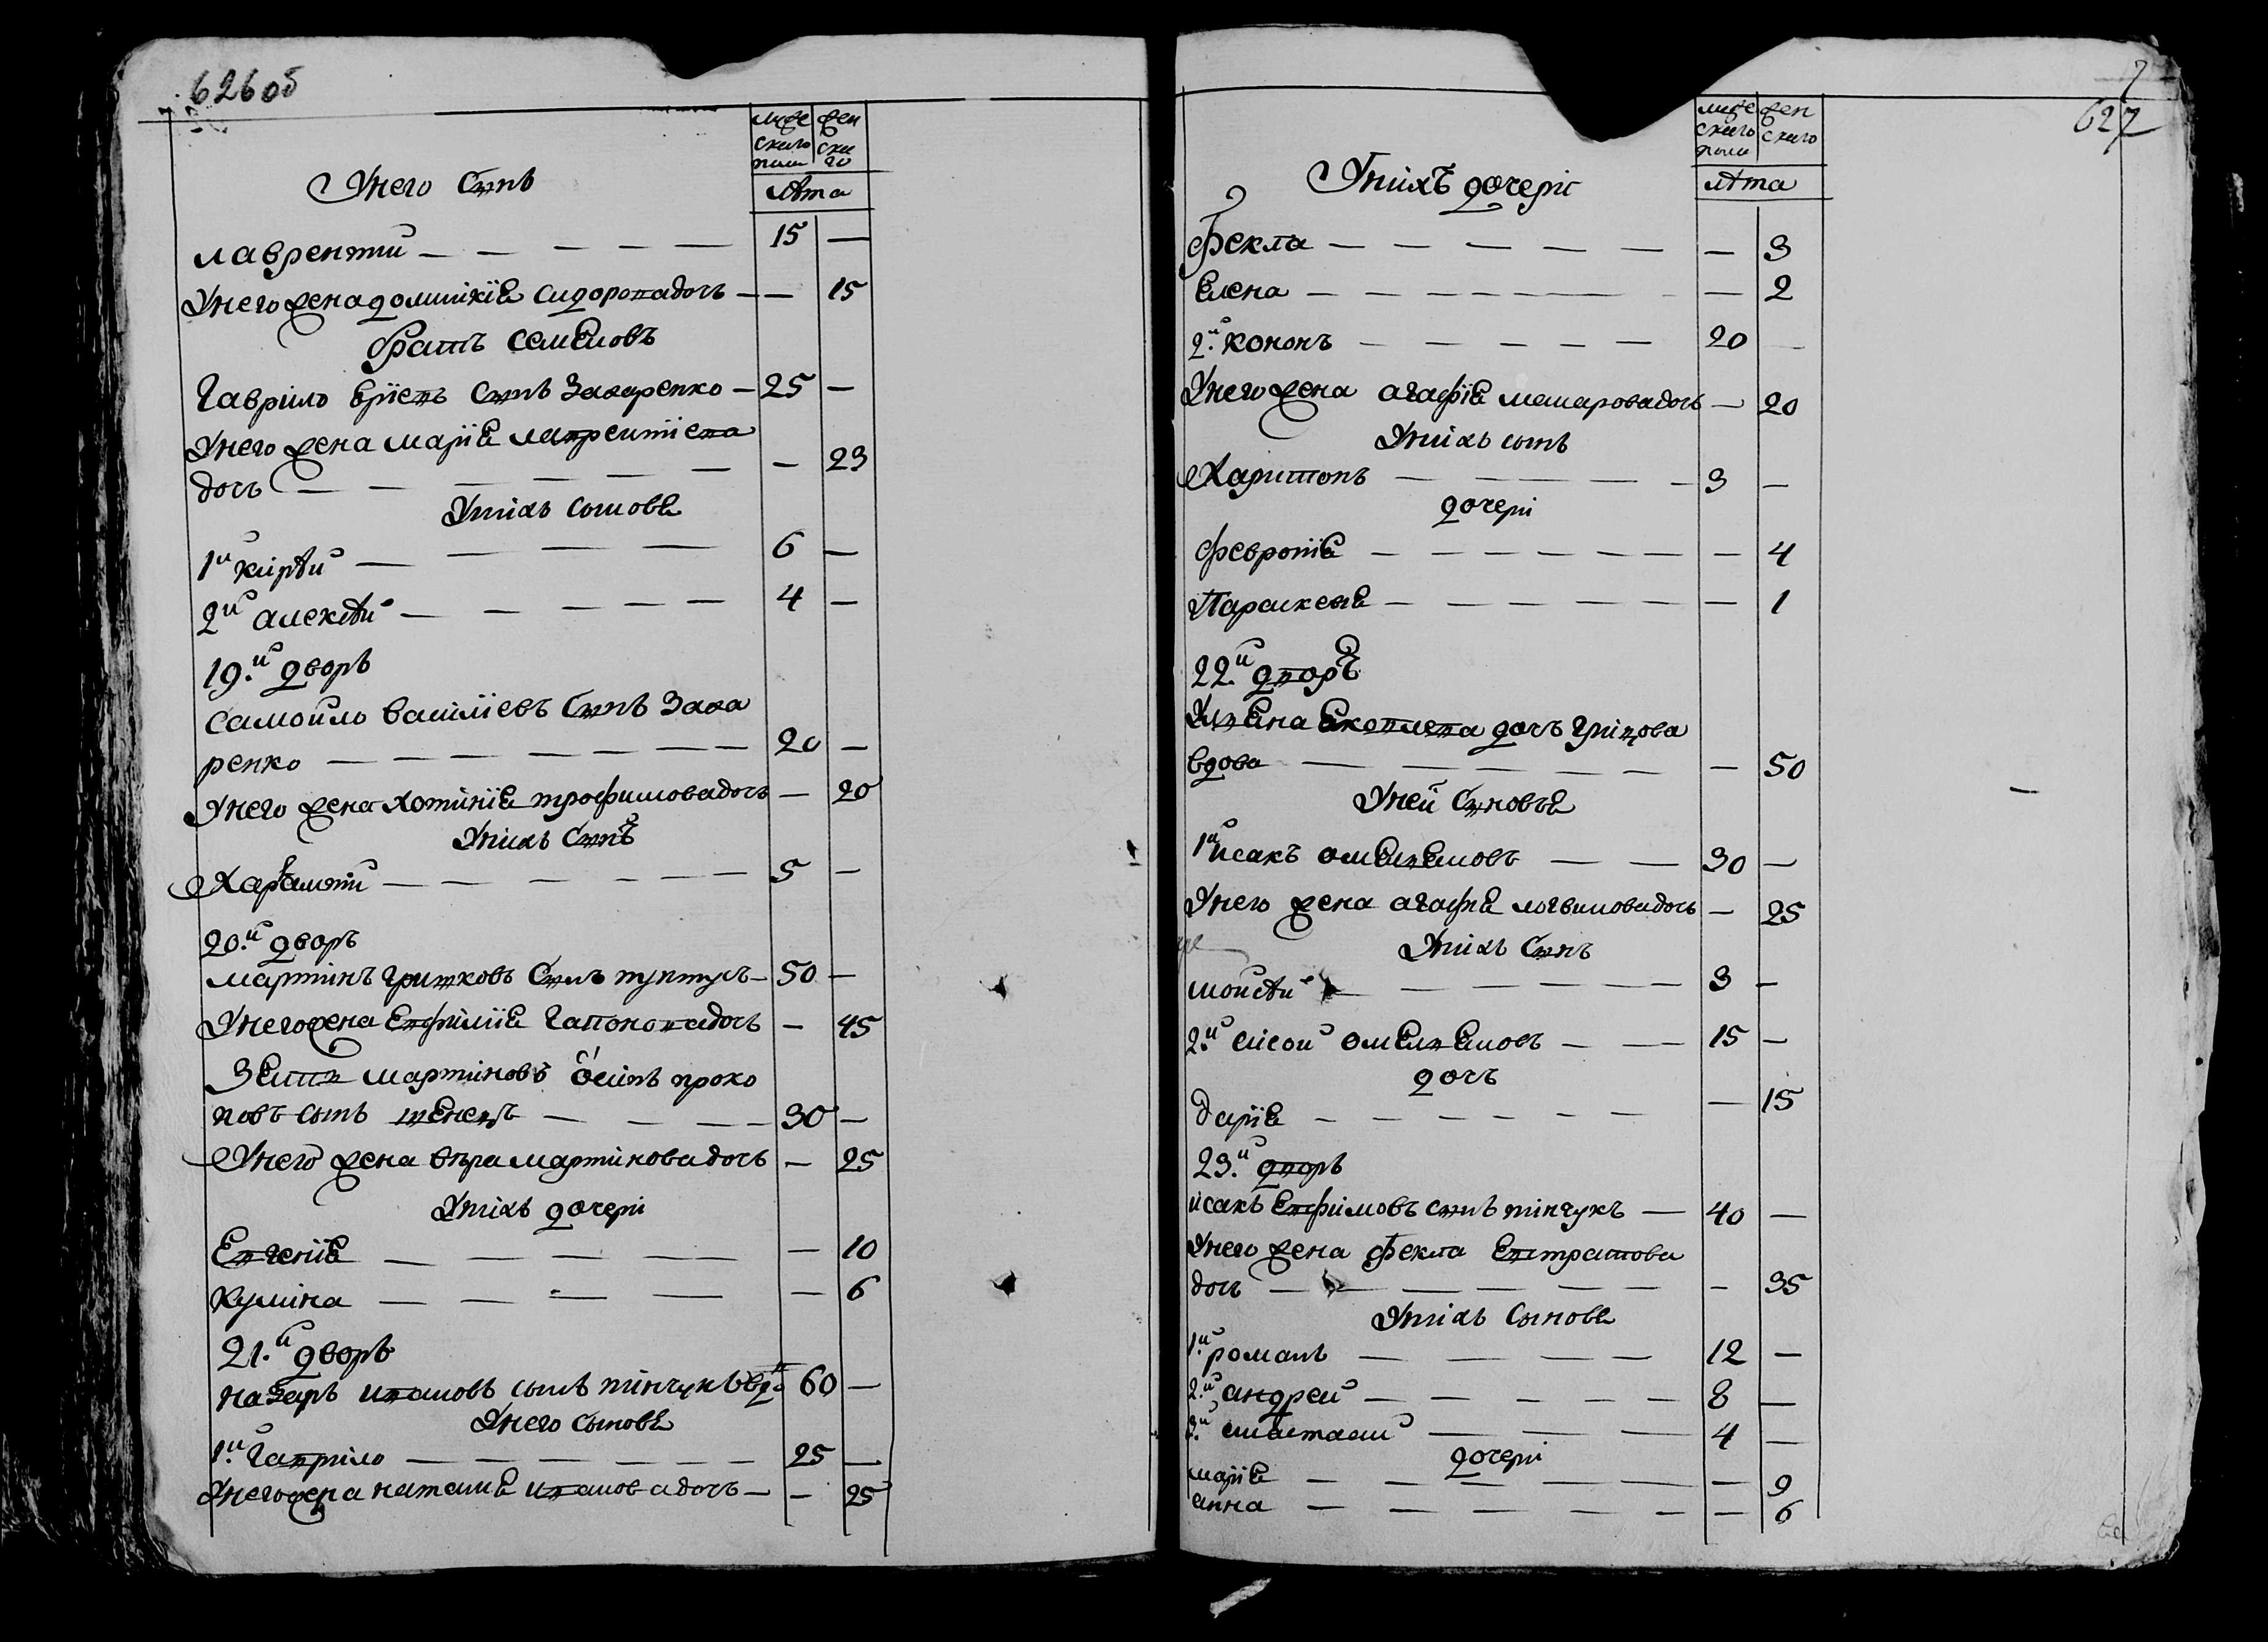 626об
муже
ского
пола
жен
ска
го
лѣта
У него Сынъ
лаврентий — 15 —
У него жена домникіѣ сидорова дочь — — 15
братъ семѣновъ
Гаврило Сынъ Захаренко — 25 —
У него жена маріѣ лаврентиева
дочь — — 23
У нихъ сыновѣ
1й кирѣй — 6 —
2й алексѣй — 4 —
19.й дворъ
самойло василіевъ Сынъ Заха
ренко — 20 —
У него жена хотиніѣ трофимова дочь — 20
У нихъ Сынъ
Харѣлампий — 5 —
20.й дворъ
мартинъ грицковъ Сынъ туптуъ — 50 —
У него жена Евфиміѣ Гапонова дочь — 45
Зѣть мартиновъ ѡсипъ проко
повъ сынъ — 30 —
У него жена вѣра мартинова дочь — 25
У нихъ дочери
Евгеніѣ — — 10
кулина — — 6
21.й дворъ
назаръ ивановъ сынъ пинчукъ вд. 60 —
У него сыновѣ
1.й Гаврило — 25 —
У него жена наталиѣ иванова дочь — — 25
7
627
муже
ского
пола
жен
ского
лѣта
У нихъ дочери
фекла — — 3
Елена — — 2
2.й кононъ — 20 —
У него жена агафіѣ макарова дочь — 20
У нихъ сынъ
Харитонъ — 3 —
дочери
февроніѣ — — 4
Параскевиѣ — — 1
22.й дворъ
Ульѣна дочь грицова
вдова — — 50
У ней Сыновьѣ
1й исакъ омелѣновъ — 30 —
У него жена агафиѣ логвинова дочь — 25
У нихъ Сынъ
мойсѣй — 3 —
2.й сисой омелѣновъ — 15 —
дочь
даріѣ — — 15
23.й дворъ
исакъ Евфимовъ сынъ пинчукъ — 40 —
У него жена фекла Евстратова
дочь — — 35
У нихъ Сыновѣ
1.й романъ — 12 —
2.й андрей — 8 —
3.й анастасий — 4 —
дочери
маріѣ — — 9
анна — — 6